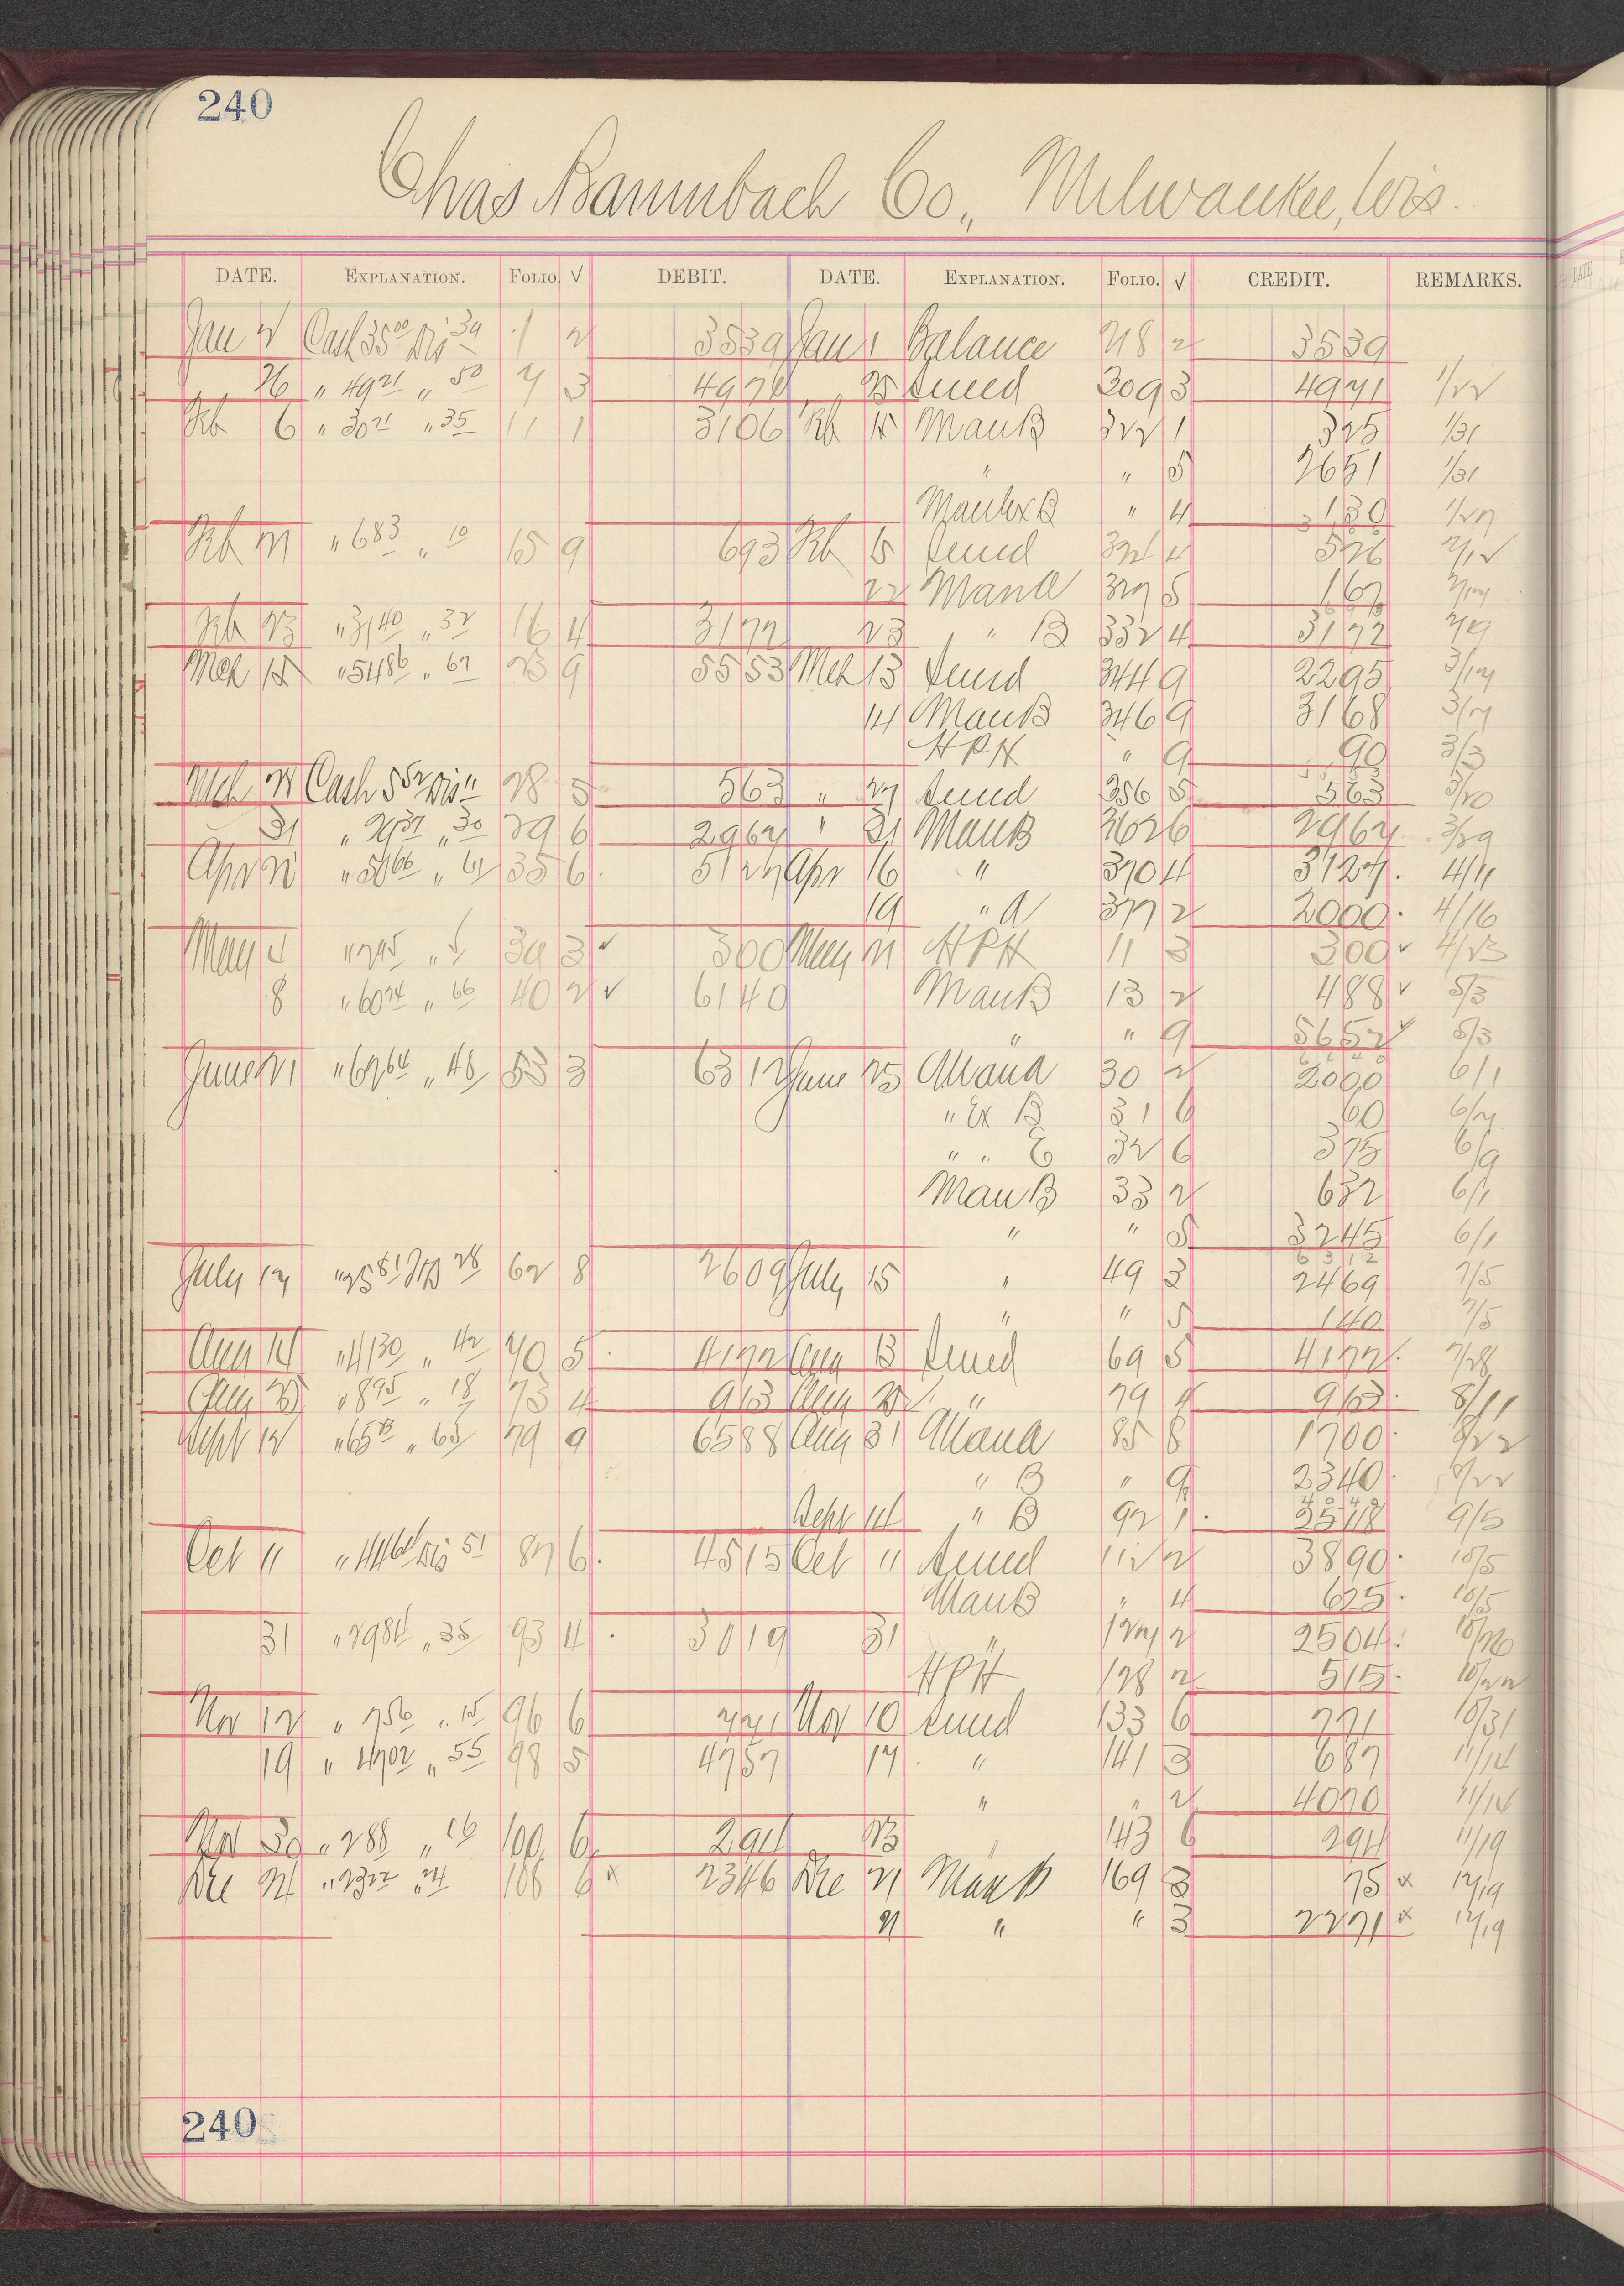 240
Chas Baumbach Co., Milwaukee, Wis.
DATE. EXPLANATION. FOLIO. √ DEBIT. DATE. EXPLANATION. FOLIO. √ CREDIT. REMARKS.
Jan 2 Cash 35 00 Dis 39 1 2 3539 Jan 1 Balance 218 2 3539
26 " 49 21 " 50 7 3 4971 25 3093 4971 1/22
Feb 6 " 30 71 " 35 11 1 3106 Feb 15 Man B 322 1 325 1/31
" " 5 2651 1/31
Man Ex B " 4 130 1/27
Feb 21 " 6 83 " 10 15 9 693 Feb 15 4 526 2/12
22 Man A 327 5 167 2/14
Feb 23 " 31 40 " 32 16 4 3172 23 " B 332 4 3172 2/19
Mch 15 " 54 86 " 67 23 9 5553 Mch 13 344 9 2295 3/14
14 Man B 346 9 3168 3/7
HPH " 9 90 3/3
Mch 28 Cash 5 52 Dis 11 28 5 563 " 27 356 5 563 3/20
31 " 29 37 " 30 29 6 2967 " 31 Man B 362 6 2967 3/29
Apr 21 " 50 66 " 61 35 6 5127 Apr 16 " 370 4 3127 4/11
19 " A 377 2 2000 4/16
May 4 " 2 95 " 5 39 3 √ 300 May 21 HPH 11 3 300 √ 4/23
8 " 60 74 " 66 40 2 √ 6140 Man B 13 2 488 √ 5/3
" " 9 5652 √ 5/3
June 21 " 62 64 " 48 53 3 6312 June 25 Man A 30 2 2000 6/1
" Ex B 31 6 60 6/7
" " C 32 6 375 6/9
Man B 33 2 632 6/1
" " 5 3245 6/1
July 17 " 25 81 Dis 28 62 8 2609 July 15 " 49 3 2469 7/5
" " 5 140 7/5
Aug 14 " 41 30 " 42 70 5 4172 Aug 13 69 5 4172 7/28
Aug 25 " 8 95 " 18 73 4 913 Aug 25 " 79 4 913 8/11
Sept 12 " 65 23 " 65 79 9 6588 Aug 31 Man A 85 8 1700 8/22
" B " 9 2340 8/22
Sept 14 " B 92 1 2548 9/5
Oct 11 " 44 64 Dis 51 87 6 4515 Oct 11 112 2 3890 10/5
Man B " 4 625 10/5
31 " 29 84 " 35 93 4 3019 31 " 127 2 2504 10/20
HPH 128 2 515 10/22
Nov 12 " 7 56 " 15 96 6 771 Nov 10 133 6 771 10/31
19 " 47 02 " 55 98 5 4757 17 " 141 3 687 11/14
" " 2 4070 11/14
Nov 30 " 2 88 " 16 100 6 294 23 " 143 6 294 11/19
Dec 24 " 23 22 " 24 106 6 x 2346 Dec 21 Man B 169 3 75 x 12/19
21 " " 3 2271 x 12/19
240